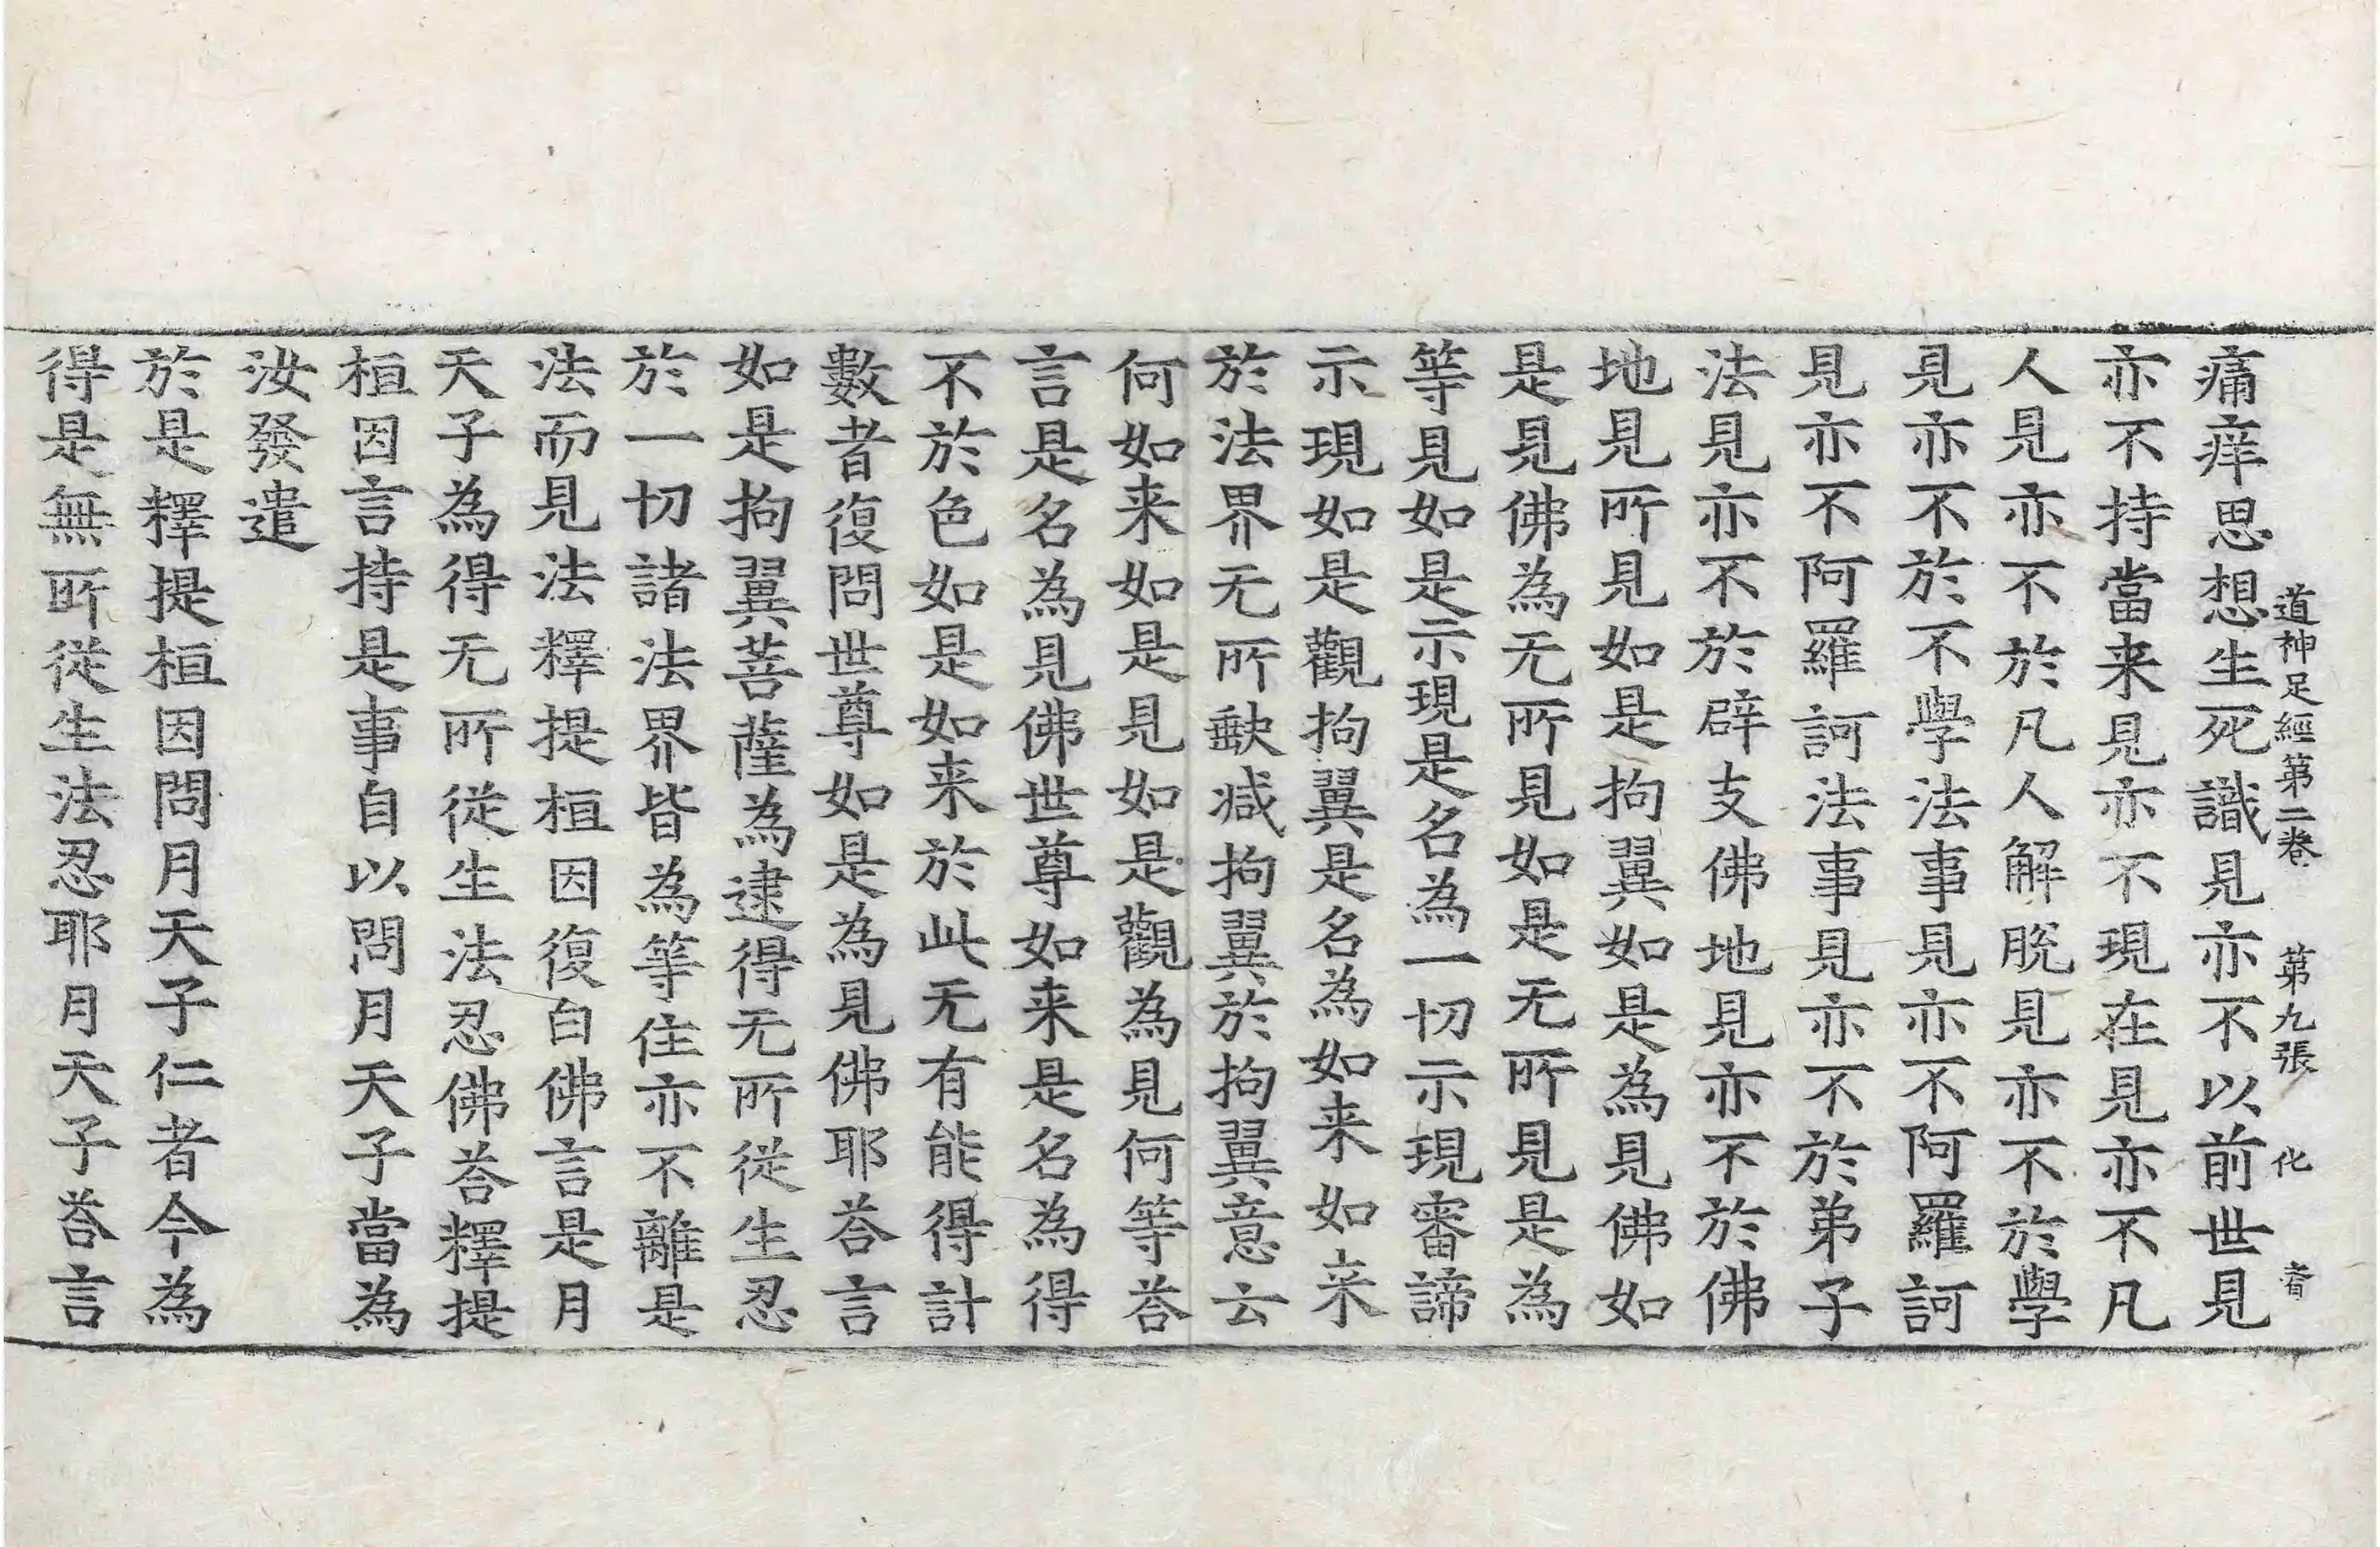 道神足經第二卷 第九張 化 者
痛痒思想生死識見亦不以前世見
亦不持當来見亦不現在見亦不凡
人見亦不於凡人解脫見亦不於學
見亦不於不學法事見亦不阿羅訶
見亦不阿羅訶法事見亦不於弟子
法見亦不於辟支佛地見亦不於佛
地見所見如是拘翼如是為見佛如
是見佛為无所見如是无所見是為
等見如是示現是名為一切示現審諦
示現如是觀拘翼是名為如来如来
於法界无所缺减拘翼於拘翼意云
何如来如是見如是觀為見何等荅
言是名為見佛世尊如来是名為得
不於色如是如来於此无有能得計
數者復問世尊如是為見佛耶荅言
如是拘翼菩薩為逮得无所從生忍
於一切諸法界皆為等住亦不離是
法而見法釋提桓因復白佛言是月
天子為得无所從生法忍佛荅釋提
桓因言持是事自以問月天子當為
汝發遣
於是釋提桓因問月天子仁者今為
得是無所從生法忍耶月天子荅言